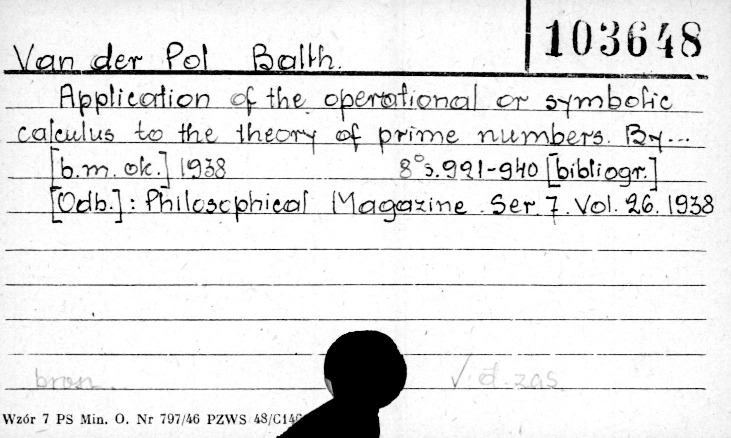 103648
Van der Pol Balth.
Application of the operational or symbolic
calculus to the theory of prime numbers. By...
[b.m.ok.] 1938 8°s.921-940 [bibliogr.]
[Odb.]: Philosophical Magazine. Ser. 7. Vol. 26. 1938
bron. V. d. zas.
Wzór 7 PS Min. O. Nr 797/46 PZWS 48/C146